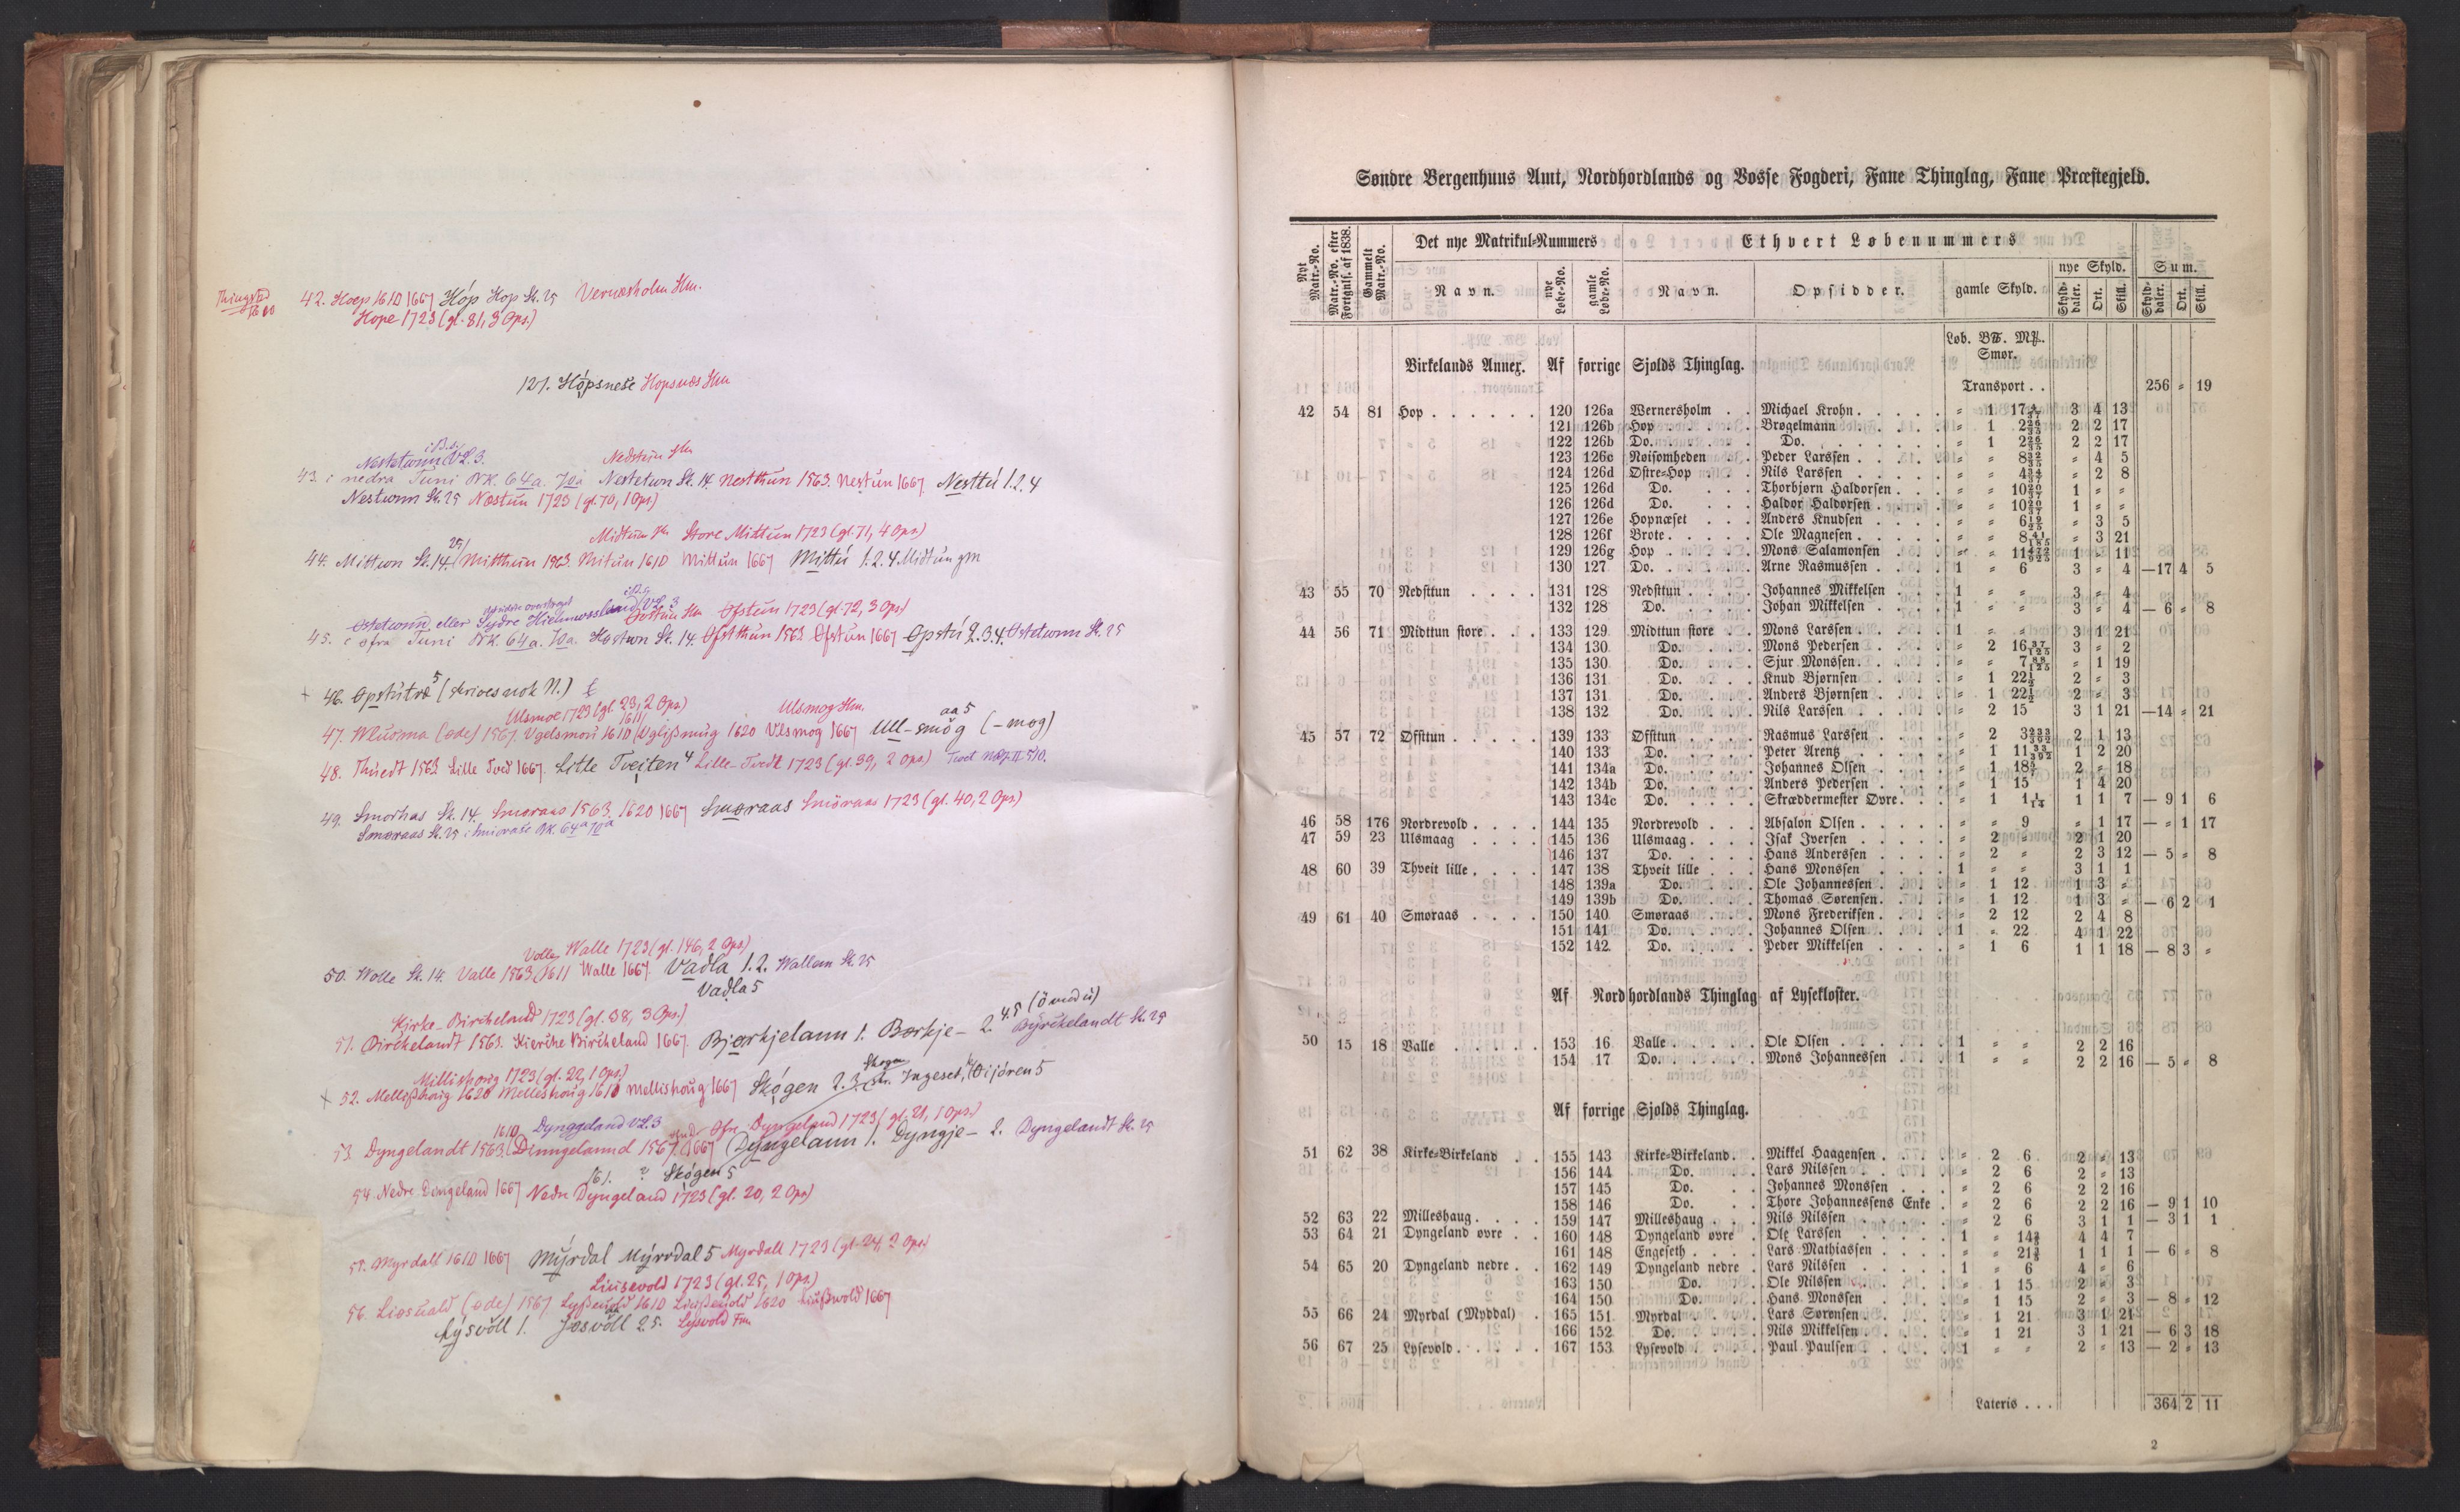 Thingsted 1600
42. Hoep 1610 1667 Hóp Hop Sk. 25 Vernæsholm Hm.
Hope 1723 (gl. 81, 3 Ops.)
121. Hópsnese Hopsnæs Hm
Nestetunn VL 3.
43. i nedra Tuni BK. 64a. 70a Nestetun Sk. 14. Nestthun 1563. Nestun 1667. Nesttú 1.2.4
Nestunn Sk. 25 Næstun 1723 (gl. 70, 1 Ops)
Midtun Hm Store Mittun 1723 (gl. 71, 4 Ops)
44. Mittwn Sk. 14. 25/ Mittthun 1563. Mitun 1610 Mittun 1667 Mittú 1.2.4. Midtun gm
Ofstun 1723 (gl. 72, 3 Ops)
45. i øfra Tuni BK. 64a. 70a. Sk. 14. Ofstthun 1563 Ofstun 1667 Opstú 2.3.4. Sk. 25
46. Opstútræ 5 (skrives nok N.)
Ulsmoe 1723 (gl. 23, 2 Ops.) Ulsmog Hm.
47. (øde) 1567. 1610 1620 Vlsmog 1667 Ull-smög aa 5 (-mog)
48. Thuedt 1563 Lille Tved 1667. Litle Tveiten 4 Lille-Tvedt 1723 (gl. 39, 2 Ops) Tvet NRJ. II 510.
49. Smorhas Sk. 14. Smøraas 1563. 1620 1667 Smøraas Smöraas 1723 (gl. 40, 2 Ops.)
Smøraas Sk. 25 BK. 64a 70a
Walle 1723 (gl. 146, 2 Ops)
50. Wolle Sk. 14. Valle 1563 1611 Walle 1667. Vadla 1.2. Wallem Sk. 25
Vadla 5
Kirke-Bircheland 1723 (gl. 38, 3 Ops.)
51. Birckelandt 1563. Kiercke Bircheland 1667. Bjærkjelann 1. Børkje- 2. 4.5 (ö med u) Byrckelandt Sk. 25
Millishoug 1723 (gl. 22, 1 Ops)
52. Mellesshoug 1620 Melleshoug 1610 Mellishoug 1667 Skógen 2.3.
1610 Dynggeland VL 3 Øfre Dyngeland 1723 (gl. 21, 1 Ops.)
53. Dyngelandt 1563. Dinngelannd 1567. 1667 Dyngelann 1. Dyngje- 2. Dyngelandt Sk. 25
161. ? Skógen 5
54. Nedre Dingeland 1667 Nedre Dyngeland 1723 (gl. 20, 2 Ops)
55. Myrdall 1610 1667 Mýrdal Mýrrdal 5 Myrdall 1723 (gl. 24, 2 Ops)
Liusevold 1723 (gl. 25, 1 Ops.)
56. Liosuald (øde) 1567 1610 1620 1667
Lýsvöll 1. Jøsvöll 2.5. Lysvold Fm.
Søndre Bergenhuus Amt, Nordhordlands og Vosse Fogderi, Fane Thinglag, Fane Præstegjeld.
Nyt Matr.-No. Matr.-No. efter Fortgnls. af 1838. Gammelt Matr.-No. Det nye Matrikul-Nummers Ethvert Løbenummers
Navn. nye Løbe-No. gamle Løbe-No. Navn. Opsidder. gamle Skyld. nye Skyld. Sum.
Skyld-daler. Ort. Skill. Skyld-daler. Ort. Skill.
Løb. B℔. M℔.
Birkelands Annex. Af førrige Sjolds Thinglag. Smør.
Transport . . 256 = 19
42 54 81 Hop . . . . . . 120 126a Wernersholm . . Michael Krohn . . . . . = 1 17 4/37 3 4 13
121 126b Hop . . . . . . Brøgelmann . . . . . = 1 2 26/35 2 2 17
122 126b Do. . . . . . Do. . . . . . = 1 2 26/35 2 2 17
123 126c Roisomheden . Peder Larssen . . . . = = 8 32/35 = 4 5
124 126d Østre-Hop . . . Nils Larssen . . . . . = = 4 34/37 = 2 8
125 126d Do. . . . Thorbjørn Haldorsen . . . = = 10 20/37 1 = =
126 126d Do. . . . Haldor Haldorsen . . . . = = 10 20/37 1 = =
127 126e Hopnæset . . . Anders Knudsen . . . . = = 6 12/25 = 3 5
128 126f Brote . . . . . Ole Magnesen . . . . . = = 8 41/185 = 3 21
129 126g Hop . . . . . Mons Salamonsen . . . = = 11 472/925 1 = 11
130 127 Do. . . . . . Arne Rasmussen . . . . 1 = 6 3 = 4 — 17 4 5
43 55 70 Nedsttun . . . . 131 128 Nedsttun . . . . Johannes Mikkelsen . . . 1 = = 3 = 4
132 128 Do. . . . . Johan Mikkelsen . . . . 1 = = 3 = 4 — 6 = 8
44 56 71 Midttun store . . . 133 129 Midttun store . . Mons Larssen . . . . . 1 = = 3 1 21
134 130 Do. . . . Mons Pedersen . . . . = 2 16 37/125 3 = 2
135 130 Do. . . . Sjur Monssen . . . . . = = 7 88/125 = 1 19
136 131 Do. . . . Knud Bjørnsen . . . . = 1 22 1/2 2 = 3
137 131 Do. . . . Anders Bjørnsen . . . . = 1 22 1/2 2 = 3
138 132 Do. . . . Nils Larssen . . . . . = 2 15 3 1 21 — 14 = 21
45 57 72 Øffttun . . . . . 139 133 Øffttun . . . . Rasmus Larssen . . . . = 2 3 233/392 2 1 13
140 133 Do. . . . . Peter Arentz . . . . . = 1 11 33/392 1 2 20
141 134a Do. . . . . Johannes Olsen . . . . = 1 18 5/7 2 = 18
142 134b Do. . . . . Anders Pedersen . . . . = 1 15 1 4 20
143 134c Do. . . . . Skræddermester Øvre . . . = 1 1 1/14 1 1 7 — 9 1 6
46 58 176 Nordrevold . . . . 144 135 Nordrevold . . . Absalon Olsen . . . . . = = 9 = 1 17 — = 1 17
47 59 23 Ulsmaag . . . . 145 136 Ulsmaag . . . . Isak Iversen . . . . . = 2 = 2 1 20
146 137 Do. . . . . Hans Anderssen . . . . = 2 = 2 3 12 — 5 = 8
48 60 39 Thveit lille . . . . 147 138 Thveit lille . . . Hans Monssen . . . . 1 = = 3 1 1
148 139a Do. . . . Ole Johannessen . . . . = 1 12 1 3 =
149 139b Do. . . . Thomas Sørensen . . . . = 1 12 1 3 = — 6 2 1
49 61 40 Smøraas . . . . 150 140 Smøraas . . . . Mons Frederiksen . . . . = 2 12 2 4 8
151 141 Do. . . . . Johannes Olsen . . . . 1 = 22 4 1 22
152 142 Do. . . . . Peder Mikkelsen . . . . = 1 6 1 1 18 — 8 3 =
Af Nordhordlands Thinglag af Lysekloster.
50 15 18 Valle . . . . . 153 16 Valle . . . . . Ole Olsen . . . . . 1 = = 2 2 16
154 17 Do. . . . . . Mons Johannessen . . . 1 = = 2 2 16 — 5 = 8
Af førrige Sjolds Thinglag.
51 62 38 Kirke-Birkeland . . 155 143 Kirke-Birkeland . . Mikkel Haagensen . . . = 2 6 2 = 13
156 144 Do. . . Lars Nilssen . . . . . = 2 6 2 = 13
157 145 Do. . . Johannes Monssen . . . = 2 6 2 2 16
158 146 Do. . . Thore Johannessens Enke . = 2 6 2 2 16 — 9 1 10
52 63 22 Milleshaug . . . . 159 147 Milleshaug . . . Nils Nilssen . . . . . = 2 6 3 1 1 — 3 1 1
53 64 21 Dyngeland øvre . . 160 148 Dyngeland øvre . Ole Larssen . . . . . 1 = 14 2/5 4 4 7
161 148 Engeseth . . . . Lars Mathiassen . . . . = = 21 3/5 1 1 1 — 6 = 8
54 65 20 Dyngeland nedre . . 162 149 Dyngeland nedre . Lars Nilssen . . . . . 1 = 6 4 = 6
163 150 Do. . . Ole Nilssen . . . . . = 1 15 2 = 3
164 150 Do. . . Hans Monssen . . . . = 1 15 2 = 3 — 8 = 12
55 66 24 Myrdal (Myddal) . 165 151 Myrdal . . . . Lars Sørensen . . . . = 1 21 3 1 21
166 152 Do. . . . . Nils Mikkelsen . . . . = 1 21 3 1 21 — 6 3 18
56 67 25 Lysevold . . . . . 167 153 Lysevold . . . . Paul Paulsen . . . . . 1 = = 2 = 13 — 2 = 13
Lateris . . . 364 2 11
2